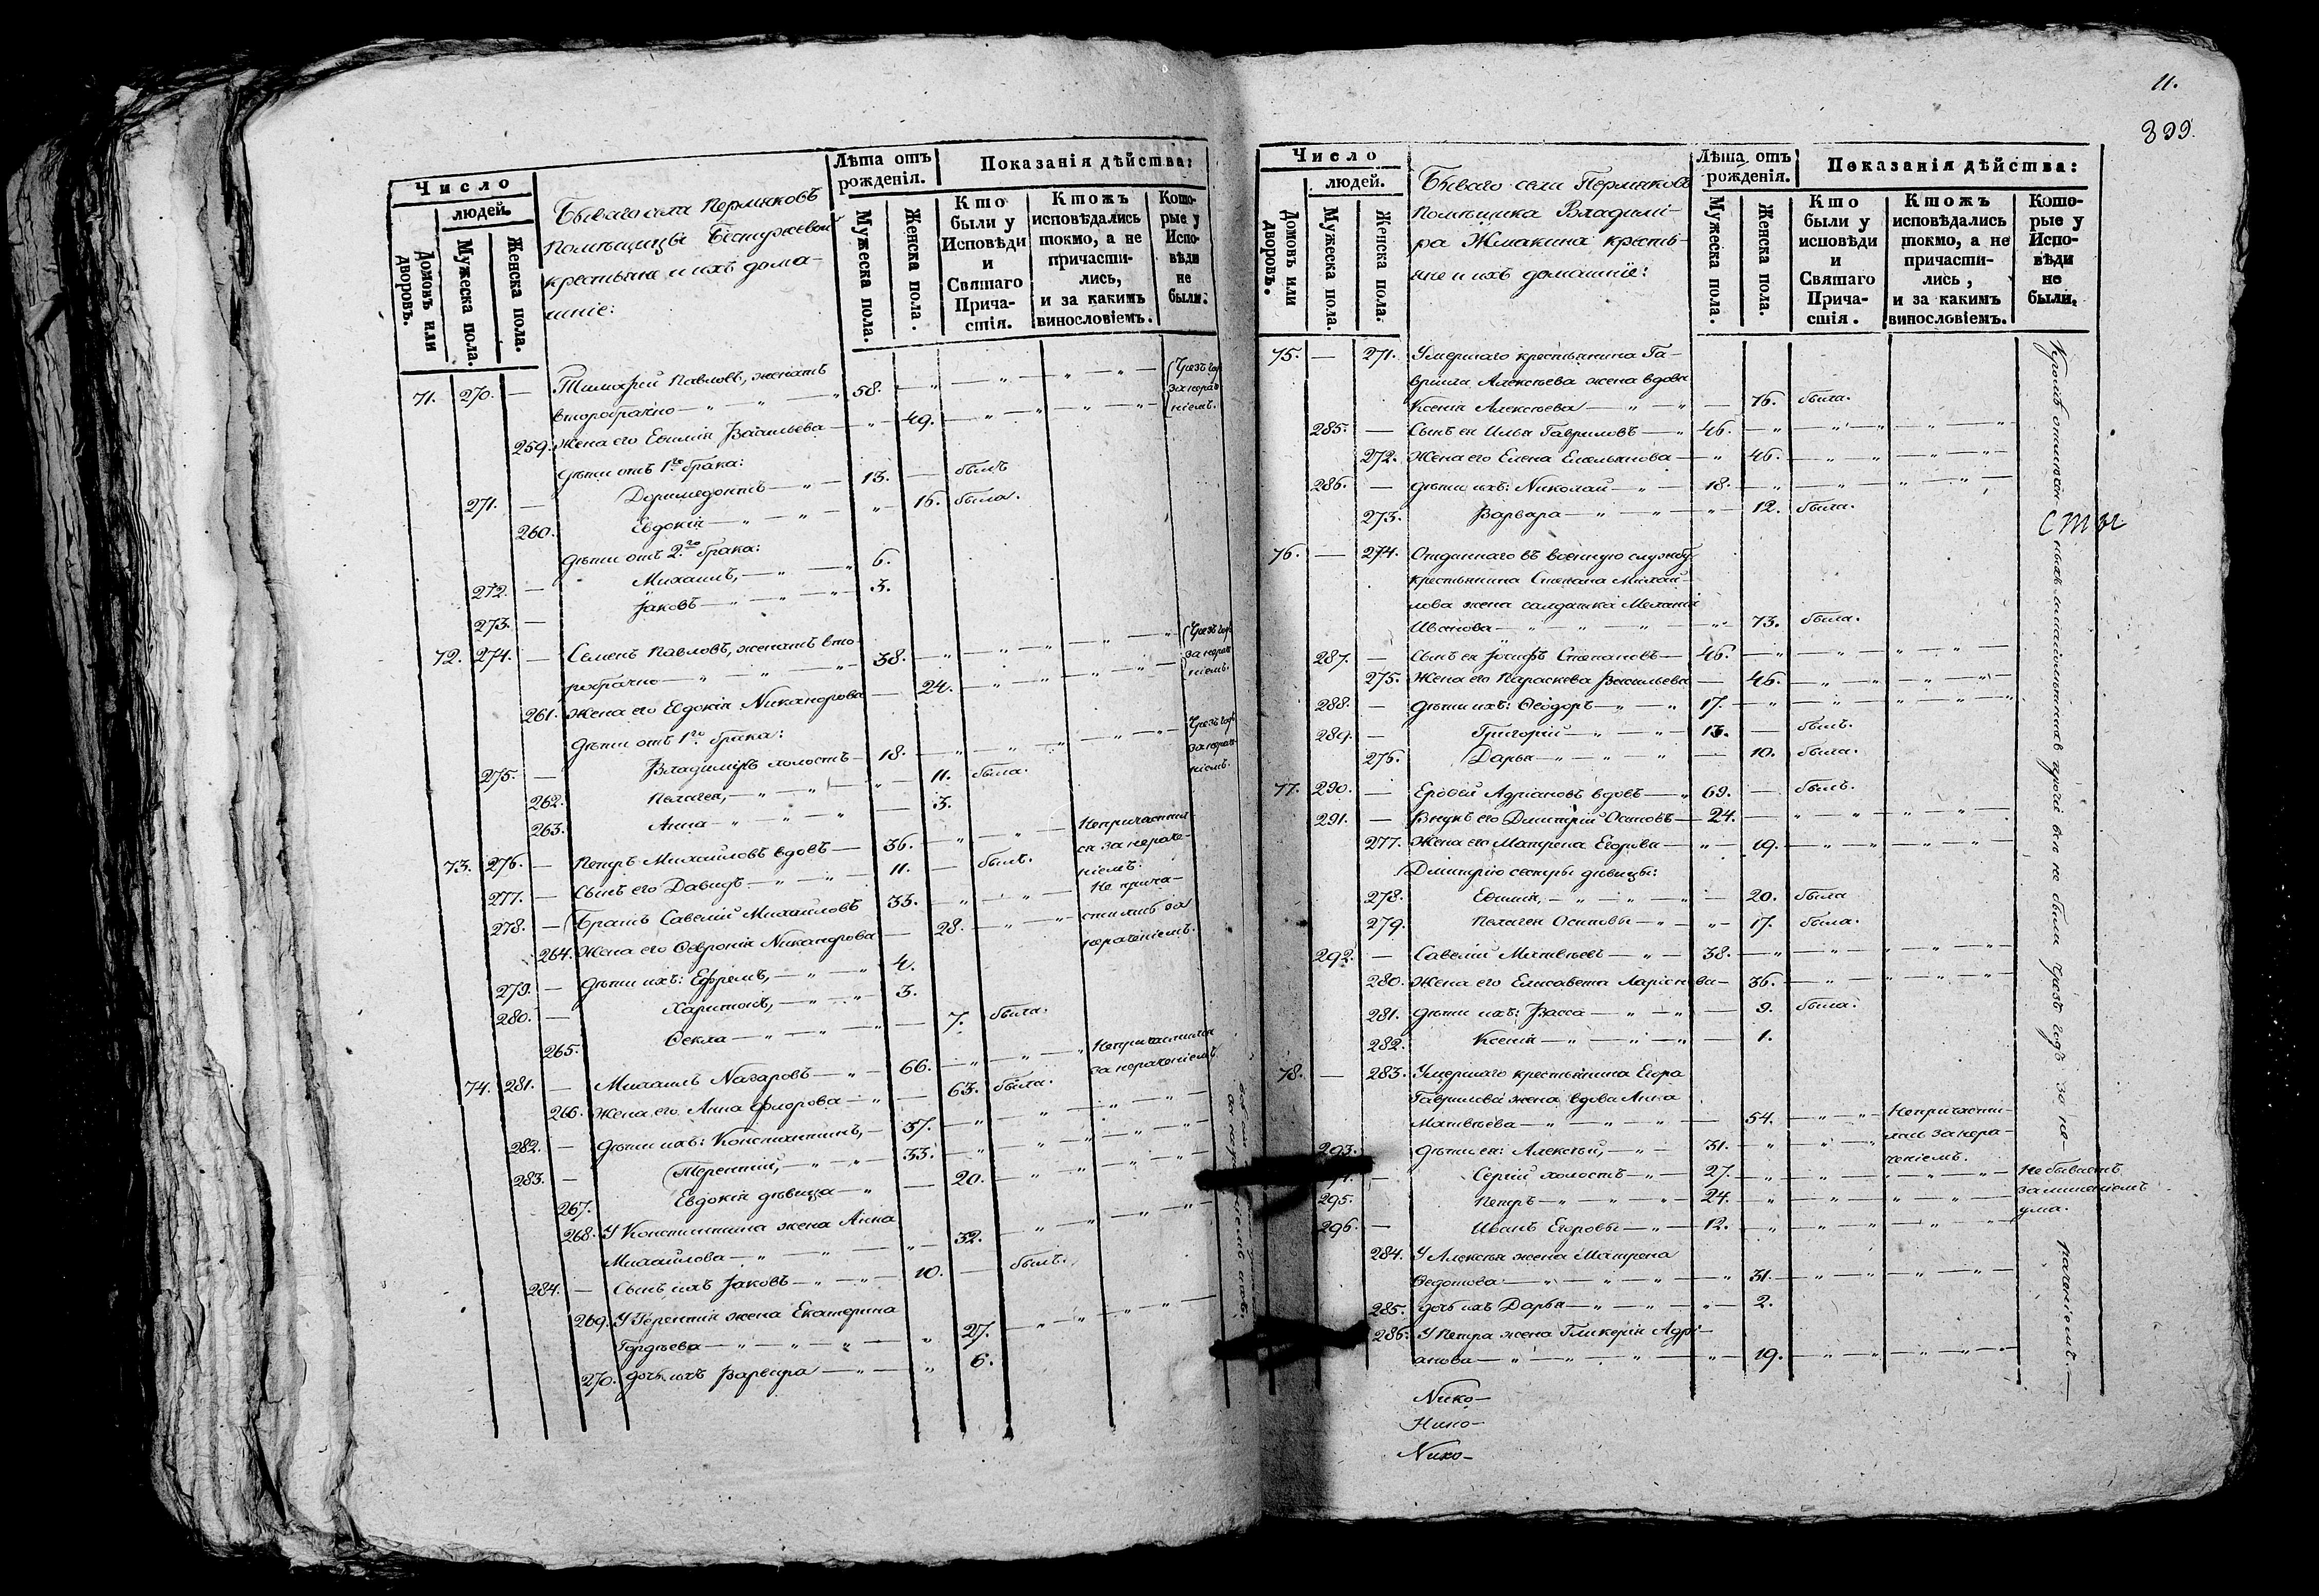 Число
людей.
Домовъ или дворовъ.
Мужеска пола.
Женска пола.
Бываго села Перликовъ
помѣщицы Бестужевой
крестьяне и ихъ дома-
шніе:
Лѣта отъ рожденія.
Мужеска пола.
Женска пола.
Показанія дѣйства:
Кто были у Исповѣди и Святаго Прича-стія.
Ктожъ исповѣдались токмо, а не причасти-лись, и за какимъ винословіемъ.
Кото-рые у Испо-вѣди не были.
71. 270. — Тимофей Павловъ, женатъ
второбрачно — 58.
259. Жена его Евфимія Васильева — 49.
Дѣти отъ 1го брака:
271. — Доримедонтъ — 13. — былъ
260. Евдокія — 16. была.
Дѣти отъ 2го брака:
272. — Михаилъ, — 6.
273. — Іаковъ — 3.
72. 274. — Семенъ Павловъ, женатъ вто-
робрачно — 38.
261. Жена его Евдокія Никандрова — 24.
Дѣти отъ 1го брака:
275. — Владиміръ холостъ — 18.
262. Пелагея, — 11. была.
263. Анна — 3.
73. 276. — Петръ Михайловъ вдовъ — 36. Непричастил-
ся за нераче-
ніемъ.
277. — Сынъ его Давидъ — 11. — былъ.
278. — Братъ Савелій Михайловъ 33. Не прича-
264. Жена его Ѳевронія Никандрова — 28. стились за
нераченіемъ.
279. — Дѣти ихъ: Ефремъ, — 4.
280. — Харитонъ, — 3.
265. Ѳекла — 7. была.
74. 281. — Михаилъ Назаровъ — 66. Непричастился
за нераченіемъ
266. Жена его Анна Ѳедорова — 63. была.
282. — Дѣти ихъ: Константинъ, — 37.
283. — Терентій, — 33.
267. Евдокія дѣвица — 20.
268. У Константина жена Анна
Михайлова — 32.
284. — Сынъ ихъ Іаковъ — 10. — былъ.
269. У Терентія жена Екатерина
Гордѣева — 27.
270. Дочь ихъ Варвара — 6.
11.
899.
Число
людей.
Домовъ или дворовъ.
Мужеска пола.
Женска пола.
Бываго села Перликовъ
помѣщика Владими-
ра Жмакина кресть-
яне и ихъ домашніе:
Лѣта отъ рожденія.
Мужеска пола.
Женска пола.
Показанія дѣйства:
Кто были у исповѣди и Святаго Прича-стія.
Ктожъ исповѣдались токмо, а не причасти-лись, и за какимъ винословіемъ.
Кото-рые у Испо-вѣди не были.
75. — 271. Умершаго крестьянина Га-
вріила Алексѣева жена вдова
Ксенія Алексѣева — 76. была.
285. — Сынъ ея Илья Гавриловъ — 46.
272. Жена его Елена Емельянова — 46.
286. — Дѣти ихъ: Николай — 18.
273. Варвара — 12. была.
76. — 274. Отданнаго въ военную службу
крестьянина Степана Михай-
лова жена салдатка Меланія
Иванова — 73. была.
287. — Сынъ ея Іосифъ Степановъ — 46.
275. Жена его Параскева Васильева — 46.
288. — Дѣти ихъ: Ѳеодоръ — 17.
289. — Григорій — 13. — былъ.
276. Дарья — 10. была.
77. 290. — Ерофей Адріановъ вдовъ — 69. — былъ.
291. — Внукъ его Димитрій Осиповъ — 24.
277. Жена его Матрена Егорова — 19.
Димитрію сестры дѣвицы:
278. Евфимія, — 20. была
279. Пелагея Осиповы — 17. была.
292. — Савелій Матвѣевъ — 38.
280. Жена его Елисавета Ларіонова — 36.
281. Дѣти ихъ: Васса — 9. была.
282. Ксенія — 1.
78. — 283. Умершаго крестьянина Егора
Гаврилова жена вдова Анна
Матвѣева — 54. Непричасти-
293. Дѣти ея: Алексѣй, — 31. лась за нера-
ченіемъ.
— Сергій холостъ — 27. Не бываетъ
295. Петръ — 24. за лишеніемъ
296. — Иванъ Егоровы — 12. ума.
284. У Алексѣя жена Матрена
Ѳедотова — 31.
285. Дочь ихъ Дарья — 2.
286. У Петра жена Гликерія Адрі-
анова — 19.
Нико-
Нико-
Нико-